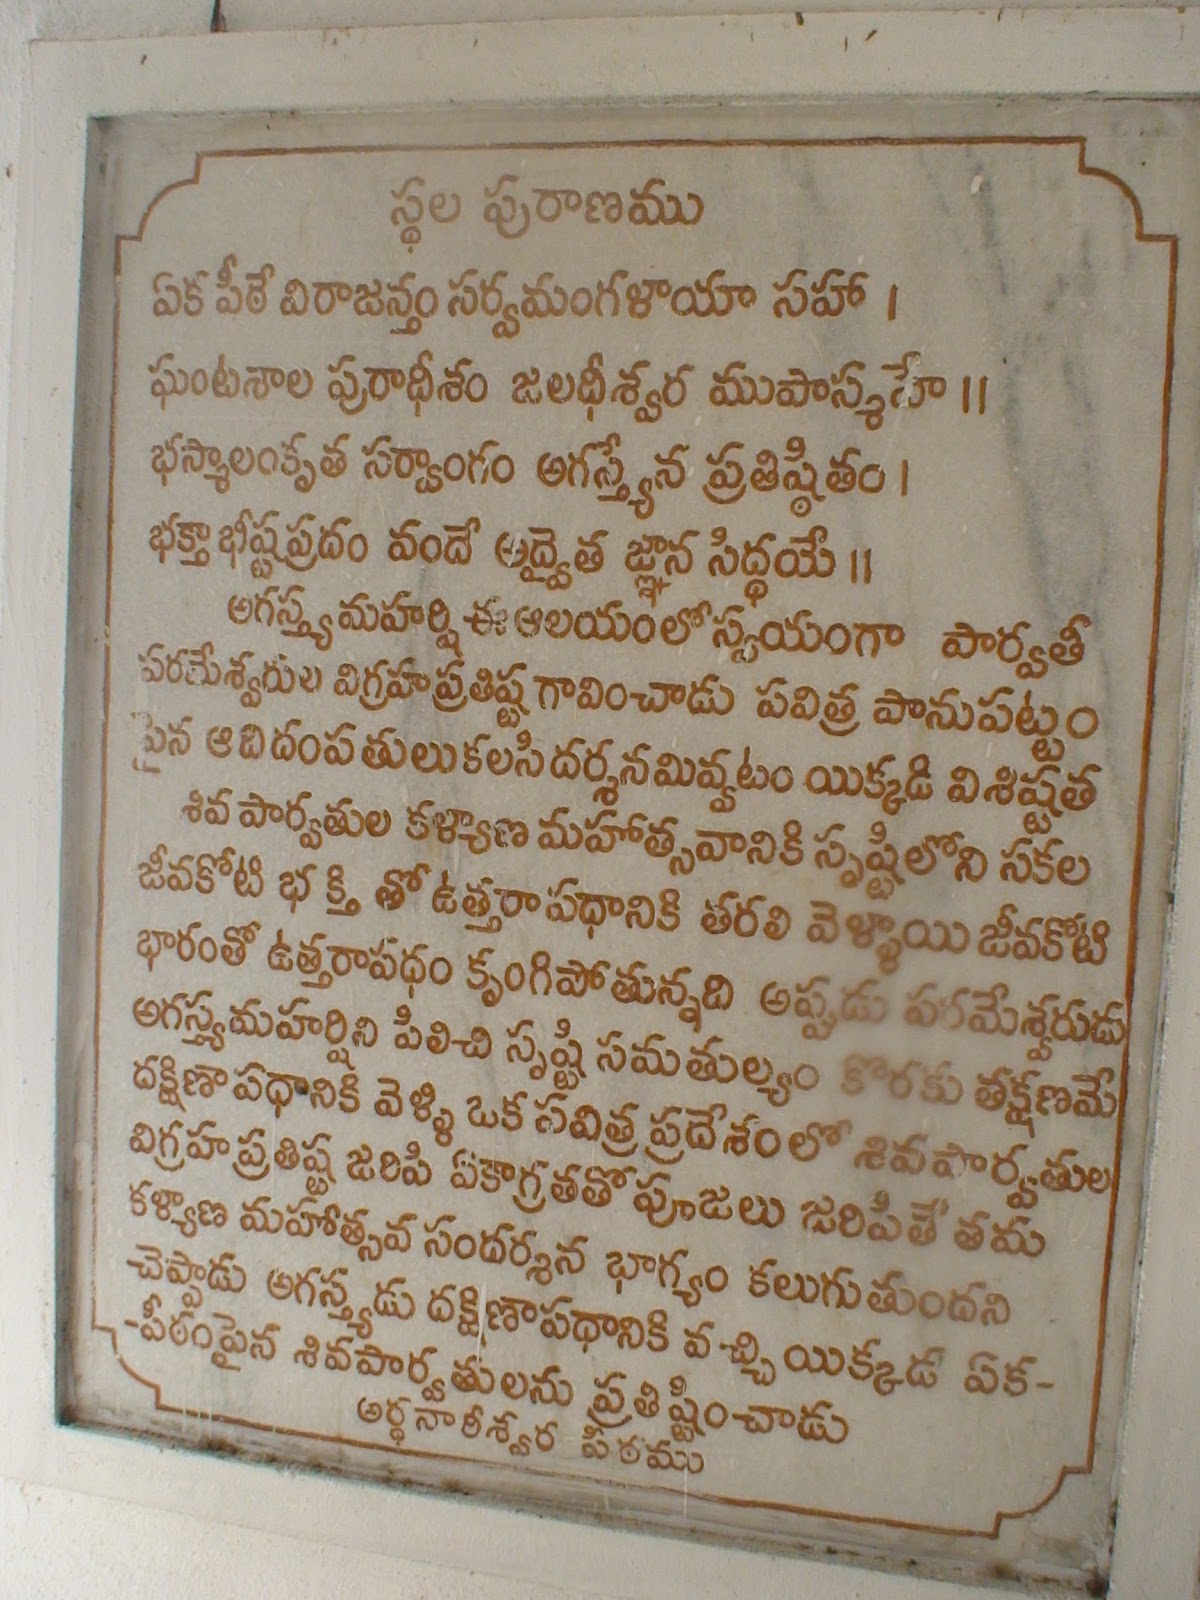 స్థల పురాణము
ఏక పీఠే విరాజన్తం సర్వమంగళాయా సహా ।
ఘంటశాల పురాధీశం జలధీశ్వర ముపాస్మహే ॥
భస్మాలంకృత సర్వాంగం అగస్త్యేన ప్రతిష్ఠితం ।
భక్తా భీష్టప్రదం వందే అద్వైత జ్ఞాన సిద్ధయే ॥
అగస్త్య మహర్షి ఈ ఆలయంలో స్వయంగా పార్వతీ
పరమేశ్వరుల విగ్రహ ప్రతిష్ట గావించాడు పవిత్ర పానుపట్టం
పైన ఆదిదంపతులు కలసి దర్శనమివ్వటం యిక్కడి విశిష్టత
శివపార్వతుల కళ్యాణ మహోత్సవానికి సృష్టిలోని సకల
జీవకోటి భక్తి తో ఉత్తరాపధానికి తరలి వెళ్ళాయి జీవకోటి
భారంతో ఉత్తరాపధం కృంగిపోతున్నది అప్పడు పరమేశ్వరుడు
అగస్త్యమహర్షిని పిలిచి సృష్టి సమతుల్యం కొరకు తక్షణమే
దక్షిణాపధానికి వెళ్ళి ఒక పవిత్ర ప్రదేశంలో శివపార్వతుల
విగ్రహ ప్రతిష్ట జరిపి ఏకాగ్రతతో పూజలు జరిపితే తమ
కళ్యాణ మహోత్సవ సందర్శన భాగ్యం కలుగుతుందని
చెప్పాడు అగస్త్యడు దక్షిణాపధానికి వచ్చి యిక్కడ ఏక-
-పీఠంపైన శివపార్వతులను ప్రతిష్టించాడు
అర్ధనారీశ్వర పీఠము